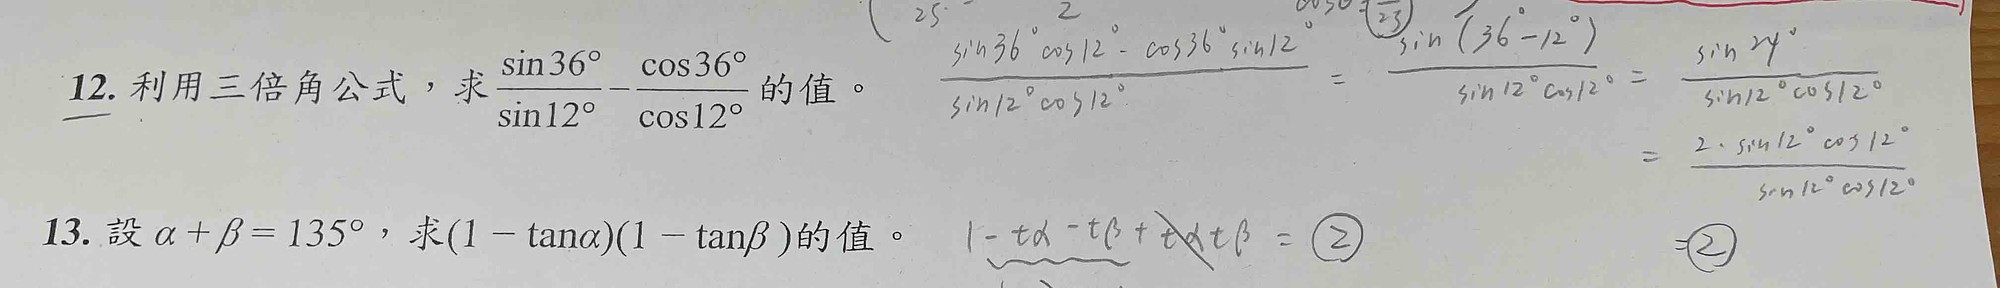 25 2 cosθ = 23
12. 利用三倍角公式，求 sin36°/sin12° − cos36°/cos12° 的值。 (sin36°cos12° - cos36°sin12°)/(sin12°cos12°) = sin(36°-12°)/(sin12°cos12°) = sin24°/(sin12°cos12°)
= 2·sin12°cos12°/(sin12°cos12°)
13. 設 α + β = 135°，求(1 − tanα)(1 − tanβ)的值。 1 - tα - tβ + tαtβ = 2
= 2